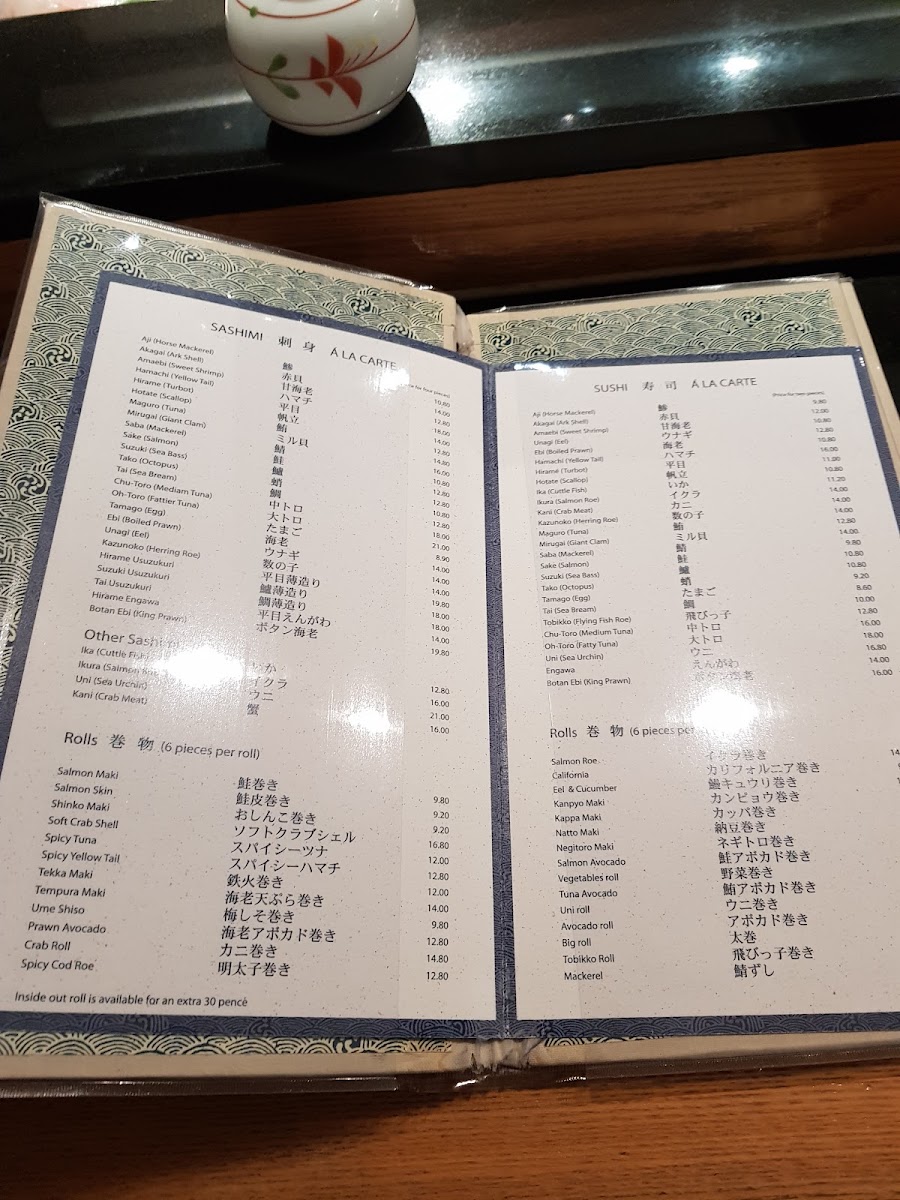 SASHIMI 刺身 Á LA CARTE
Aji (Horse Mackerel) 鯵 10.80
Akagai (Ark Shell) 赤貝 14.00
Amaebi (Sweet Shrimp) 甘海老 12.80
Hamachi (Yellow Tail) ハマチ 18.00
Hirame (Turbot) 平目 14.00
Hotate (Scallop) 帆立 12.80
Maguro (Tuna) 鮪 14.80
Mirugai (Giant Clam) ミル貝 16.00
Saba (Mackerel) 鯖 10.80
Sake (Salmon) 鮭 12.80
Suzuki (Sea Bass) 鱸 12.80
Tako (Octopus) 蛸 10.80
Tai (Sea Bream) 鯛 12.80
Chu-Toro (Mediam Tuna) 中トロ 18.00
Oh-Toro (Fattier Tuna) 大トロ 21.00
Tamago (Egg) たまご 8.90
Ebi (Boiled Prawn) 海老 14.00
Unagi (Eel) ウナギ 14.00
Kazunoko (Herring Roe) 数の子 14.00
Hirame Usuzukuri 平目薄造り 19.80
Suzuki Usuzukuri 鱸薄造り 18.00
Tai Usuzukuri 鯛薄造り 18.00
Hirame Engawa 平目えんがわ 14.00
Botan Ebi (King Prawn) ボタン海老 19.80
Other
Ika (Cuttle Fish) いか 12.80
Ikura (Salmon イクラ 16.00
Uni (Sea Urchin) ウニ 21.00
Kani (Crab Meat) 蟹 16.00
Rolls 巻物 (6 pieces per roll)
Salmon Maki 鮭巻き 9.80
Salmon Skin 鮭皮巻き 9.20
Shinko Maki おしんこ巻き 9.20
Soft Crab Shell ソフトクラブシェル 16.80
Spicy Tuna スパイシーツナ 12.00
Spicy Yellow Tail スパイシーハマチ 12.80
Tekka Maki 鉄火巻き 12.00
Tempura Maki 海老天ぷら巻き 14.00
Ume Shiso 梅しそ巻き 9.80
Prawn Avocado 海老アボカド巻き 12.80
Crab Roll カニ巻き 14.80
Spicy Cod Roe 明太子巻き 12.80
Inside out roll is available for an extra 30 pence
SUSHI 寿司 Á LA CARTE
(Price for two pieces)
Aji (Horse Mackerel) 鯵 9.80
Akagai (Ark Shell) 赤貝 12.00
Amaebi (Sweet Shrimp) 甘海老 10.80
Unagi (Eel) ウナギ 12.80
Ebi (Boiled Prawn) 海老 10.80
Hamachi (Yellow Tail) ハマチ 16.00
Hirame (Turbot) 平目 11.00
Hotate (Scallop) 帆立 10.80
Ika (Cuttle Fish) いか 11.20
Ikura (Salmon Roe) イクラ 14.00
Kani (Crab Meat) カニ 14.00
Kazunoko (Herring Roe) 数の子 14.00
Maguro (Tuna) 鮪 12.80
Mirugai (Giant Clam) ミル貝 14.00
Saba (Mackerel) 鯖 9.80
Sake (Salmon) 鮭 10.80
Suzuki (Sea Bass) 鱸 10.80
Tako (Octopus) 蛸 9.20
Tamago (Egg) たまご 8.60
Tai (Sea Bream) 鯛 10.00
Tobikko (Flying Fish Roe) 飛びっ子 12.80
Chu-Toro (Medium Tuna) 中トロ 16.00
Oh-Toro (Fatty Tuna) 大トロ 18.00
Uni (Sea Urchin) ウニ 16.80
Engawa えんがわ 14.00
Botan Ebi (King Prawn) ボタン海老 16.00
Rolls 巻物 (6 pieces per
Salmon Roe イクラ巻き
California カリフォルニア巻き
Eel & Cucumber 鰻キュウリ巻き
Kanpyo Maki カンピョウ巻き
Kappa Maki カッパ巻き
Natto Maki 納豆巻き
Negitoro Maki ネギトロ巻き
Salmon Avocado 鮭アボカド巻き
Vegetables roll 野菜巻き
Tuna Avocado 鮪アボカド巻き
Uni roll ウニ巻き
Avocado roll アボカド巻き
Big roll 太巻
Tobikko Roll 飛びっ子巻き
Mackerel 鯖ずし